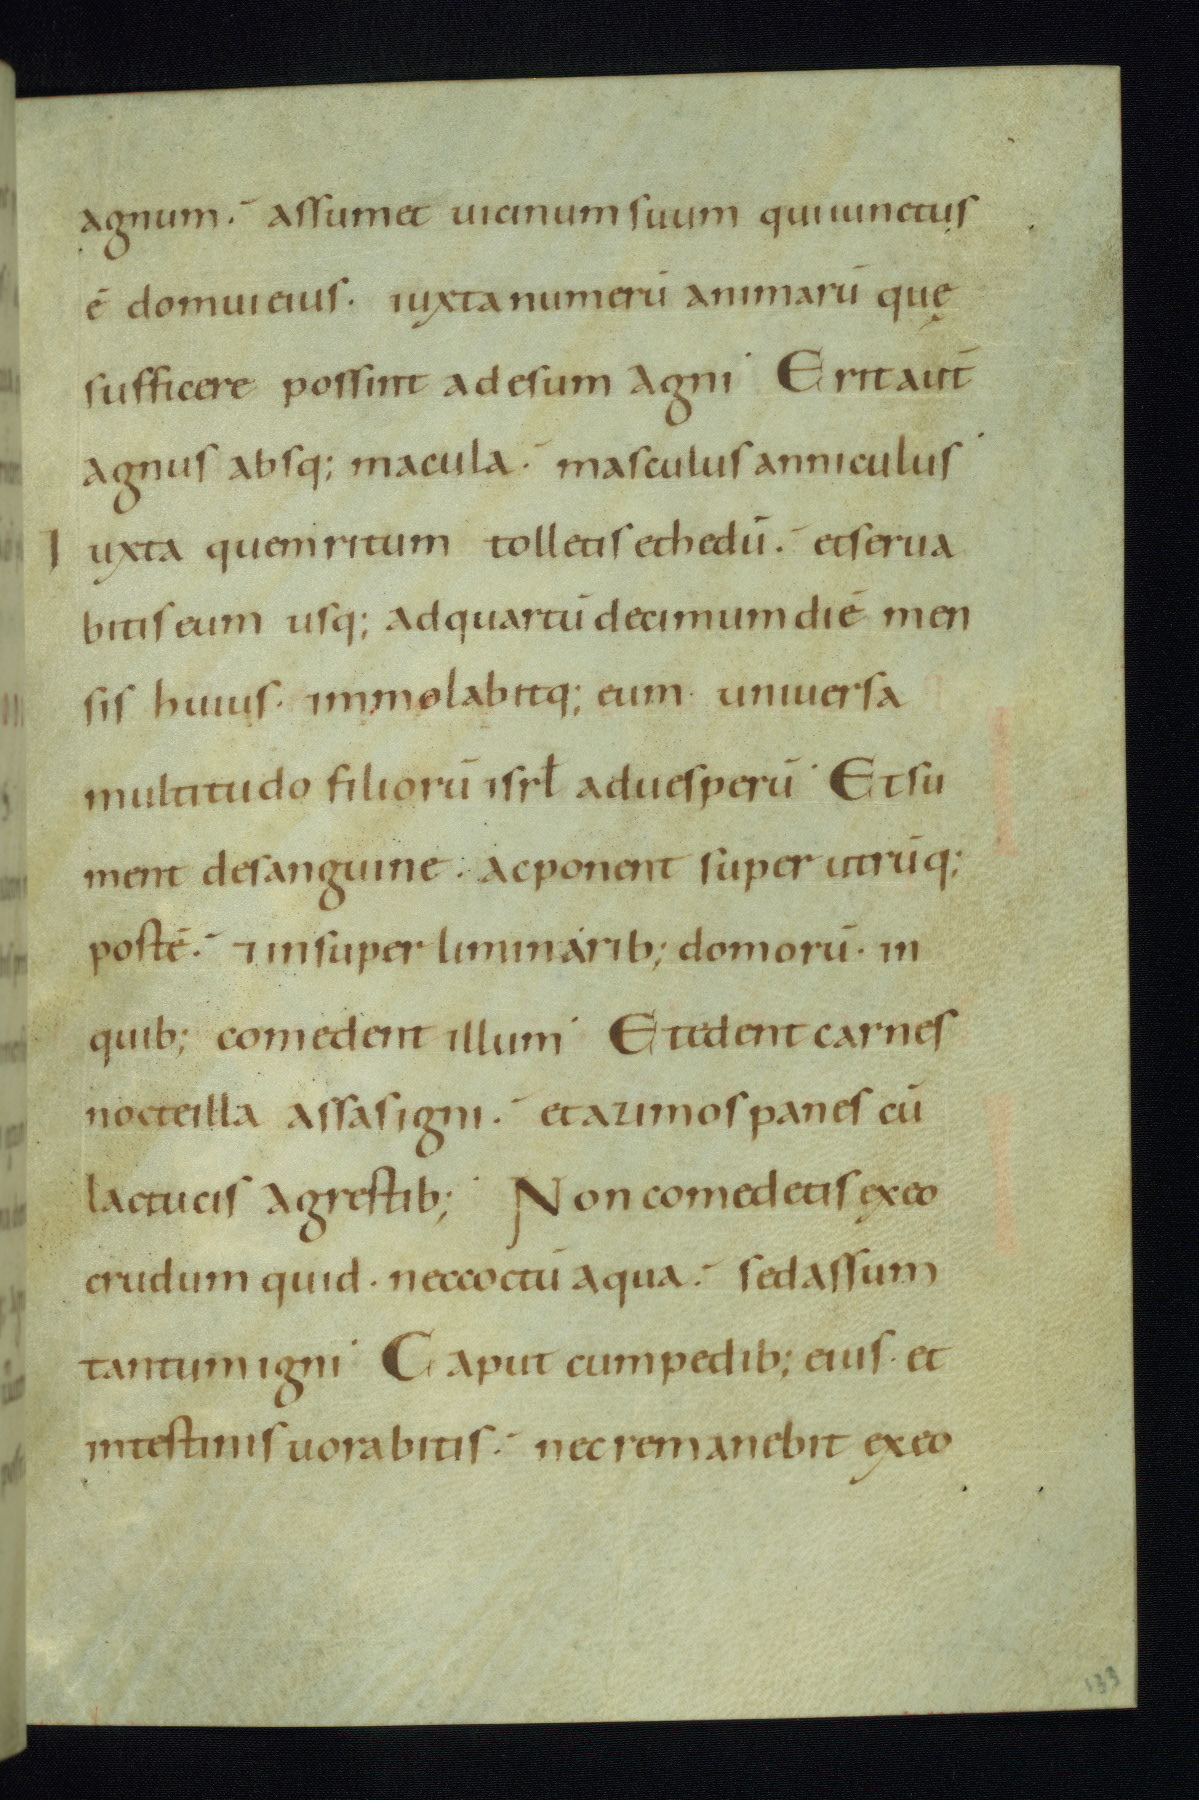 agnum. assumet uicinum suum qui iunctus
ē domui eius. iuxta numerū animarū quę
sufficere possint ad esum agni Erit aut̄
agnus absq; macula. masculus anniculus
Iuxta quem ritum tolletis et hedū. et serua
bitis eum usq; ad quartū decimum diē men
sis huius. immolabitq; eum uniuersa
multitudo filiorū isrł ad uesperū Et su
ment de sanguine. ac ponent super utrūq;
postē. ⁊ in super liminarib; domorū. in
quib; comedent illum Et edent carnes
nocte illa assas igni. et azimos panes cū
lactucis agrestib; Non comedetis ex eo
crudum quid. nec coctū aqua. sed assum
tantum igni Caput cum pedib; eius. et
intestinis uorabitis. nec remanebit ex eo
133